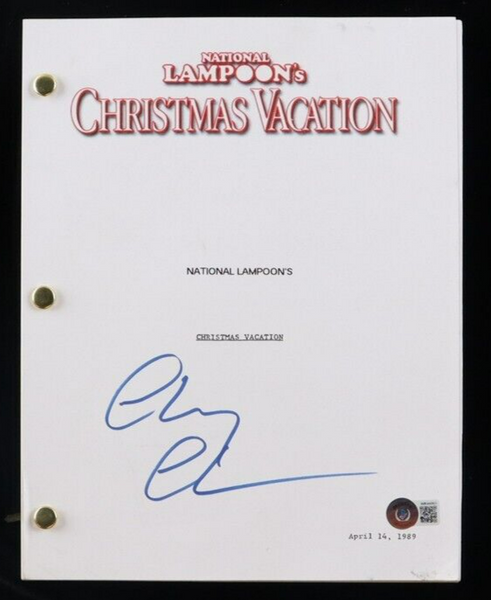 NATIONAL
LAMPOON's
CHRISTMAS VACATION
NATIONAL LAMPOON'S
CHRISTMAS VACATION
April 14, 1989